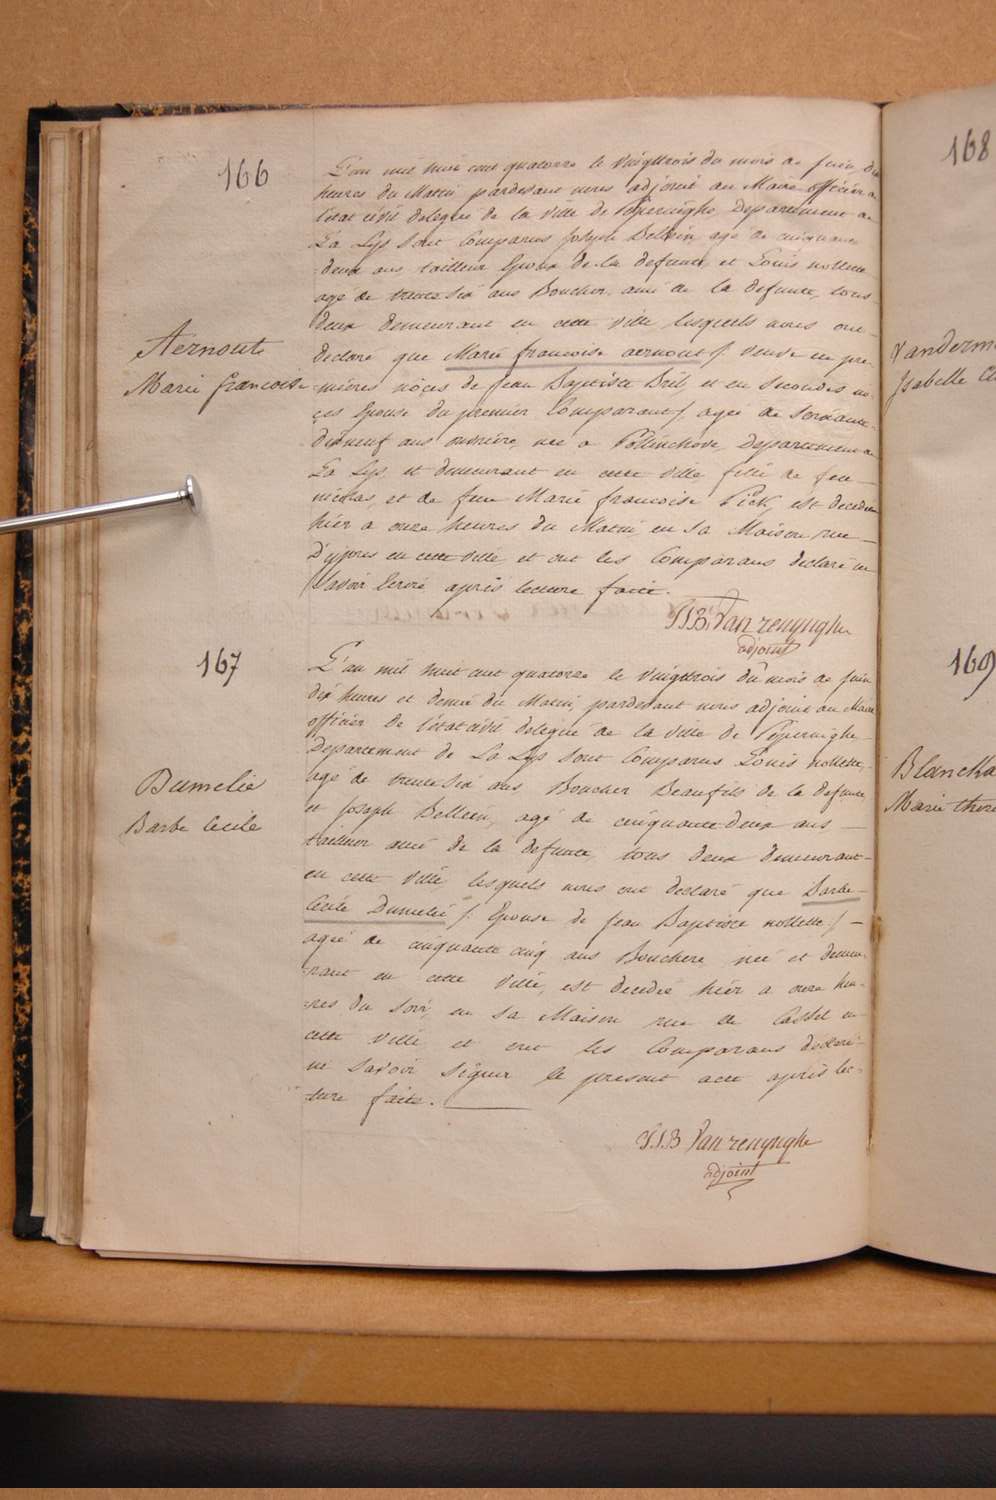 166
L'an mil huit cent quatorze le vingttrois du mois de juin, dix
heures du Matin pardevant nous adjoint au Maire officier de
l'état civil delegué de la ville de Poperinghe Departement de
La Lys sont Comparus Joseph Bellein, agé de cinquante
deux ans tailleur Epoux de la defunte, et Louis nollette
agé de trente six ans Boucher, ami de la defunte, tous
deux demeurant en cette ville lesquels nous ont
declaré que Marie francoise aernout /: veuve en pre-
Aernout
Marie francoise
=mières nôces de Jean Baptiste Bril, et en secondes no-
ces Epouse du premier Comparant / agée de soixante-
dixneuf ans ouvrière, née a Pollinchove, Departement de
La Lys, et demeurant en cette ville fille de feu
nicolas, et de feue Marie francoise Pick, est decedée
hier a onze heures du Matin, en sa Maison rue
D'ypres en cette ville et ont les Comparans declaré ne
savoir Ecrire après lecture faite.
P.J.B. Van renynghe
adjoint
167
L'an mil huit cent quatorze le vingttrois du mois de juin
dix heures et demie du Matin, pardevant nous adjoint au Maire
officier de l'état civil delegué de la ville de Poperinghe
Departement de La Lys sont Comparus Louis nollette,
agé de trente six ans Boucher Beaufils de la defunte
Dumelie
Barbe Cecile
et Joseph Bellein, agé de cinquante deux ans
tailleur ami de la defunte, tous deux demeurant
en cette ville, lesquels nous ont declaré que Barbe
Cecile Dumelié /: Epouse de Jean Baptiste nollette /
agée de cinquante cinq ans Bouchere née et demeu-
=rant en cette ville, est decedée hier a onze heu-
=res du soir, en sa Maison rue de Cassel en
cette ville et ont les Comparans declaré
ne savoir signer le present acte après lec-
=ture faite.
P.J.B Van renynghe
adjoint
168
Isabelle
169
Marie